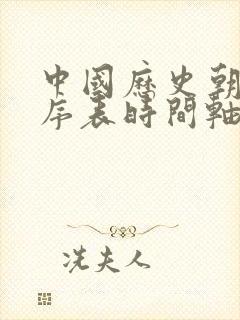 中國歷史朝
序表時間軸
冼夫人